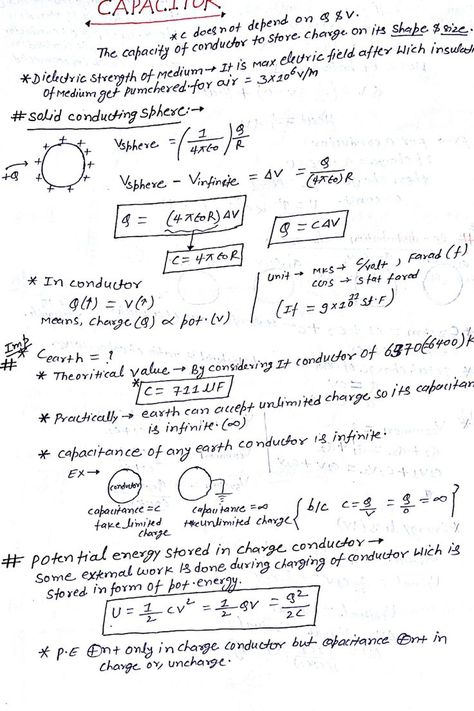 CAPACITOR
*C does not depend on Q & V.
The capacity of conductor to store charge on its shape & size.
*Dielectric strength of Medium → It is max electric field after wich insulat
of Medium get pumchered. for air = 3×10⁶ V/M
# solid conducting sphere:→
+Q
+ + + + + + + + +
Vsphere = (1/4πε0) Q/R
Vsphere − Vinfinite = ΔV = Q/(4πε0)R
Q = (4πε0R) ΔV
Q = CΔV
C = 4πε0R
* In conductor
Q(↑) = V(↑)
Means, charge (Q) ∝ pot. (V)
unit → MKS → C/Volt, Farad (f)
CGS → stat farad
(1f = 9×10²² st. F)
Imp
# * Cearth = ?
* Theoritical value → By considering It conductor of 6370(≈6400) K
* C = 711 UF
* Practically → earth can accept unlimited charge so its capacitan
is infinite. (∞)
* capacitance of any earth conductor is infinite.
Ex →
conductor
capacitance = C
take limited
charge
capacitance = ∞
unlimited charge
{ b/c C = Q/V = Q/0 = ∞ }
# Potential energy stored in charge conductor →
Some external work is done during charging of conductor wich is
stored in form of pot. energy.
U = 1/2 CV² = 1/2 QV = Q²/2C
* P.E only in charge conductor but capacitance in
charge or, uncharge.